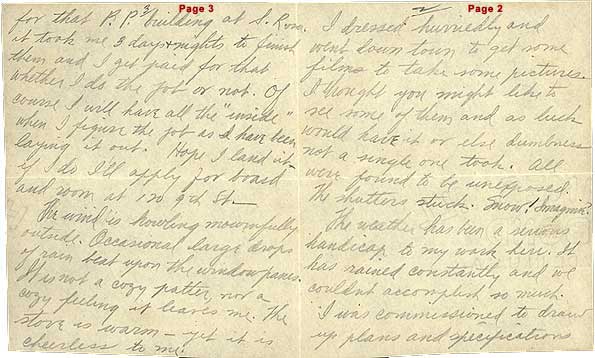 Page 2
2
I dressed hurriedly and
went down town to get some
films to take some pictures.
I thought you might like to
see some of them and as luck
would have it or else dumbness
not a single one took. All
were found to be unexposed.
The shutters stuck. Snow! Imagine?
The weather has been a serious
handicap to my work here. It
has rained constantly and we
couldnt accomplish so much.
I was commissioned to draw
up plans and specifications
Page 3
3
for that P.P. building at S. Ross.
it took me 3 days & nights to finish
them and I get paid for that
whether I do the job or not. Of
course I will have all the "inside"
when I figure the job as I have been
laying it out. Hope I land it
if I do I'll apply for board
and room at 120 9th St.
The wind is howling mournfully
outside. Occasional large drops
of rain beat upon the windowpanes.
It is not a cozy patter, nor a
cozy feeling it leaves me. The
stove is warm — yet it is
cheerless to me.